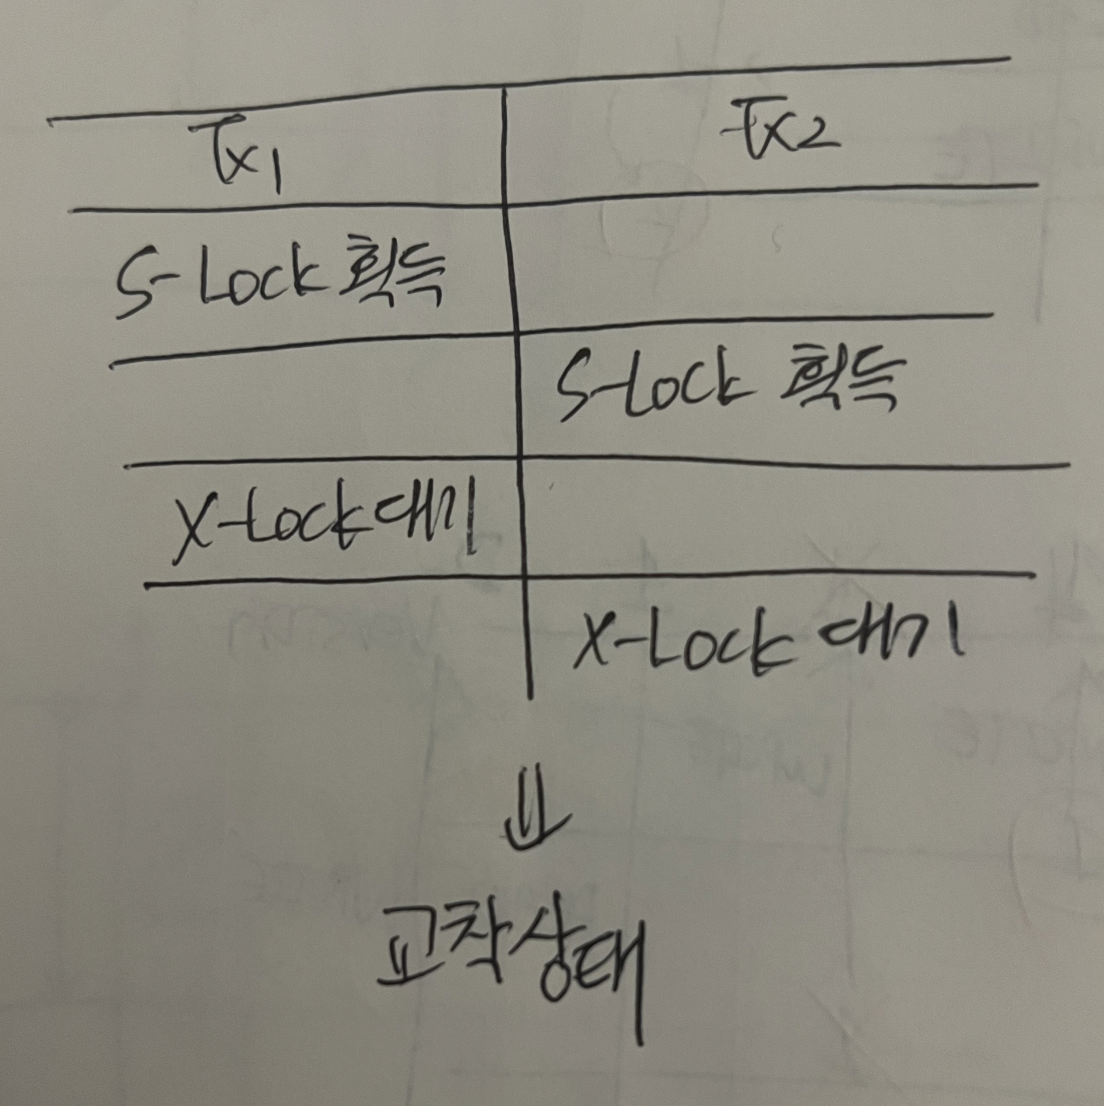 Tx1 Tx2
S-Lock 획득
S-Lock 획득
X-Lock 대기
X-Lock 대기
⇓
교착상태